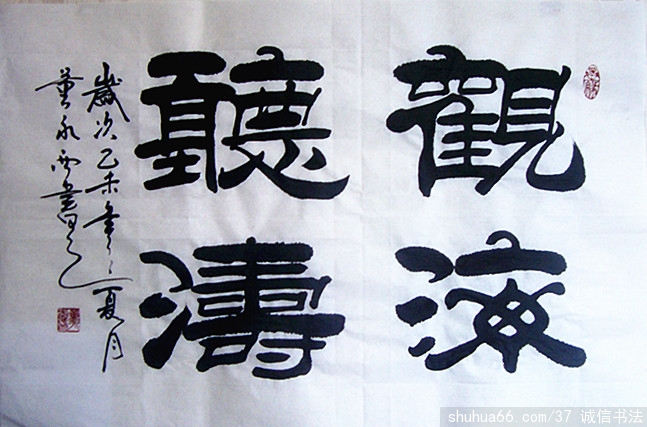 觀海
聽濤
歲次乙未年之夏月
董永西書
shuhua66.com/37 诚信书法